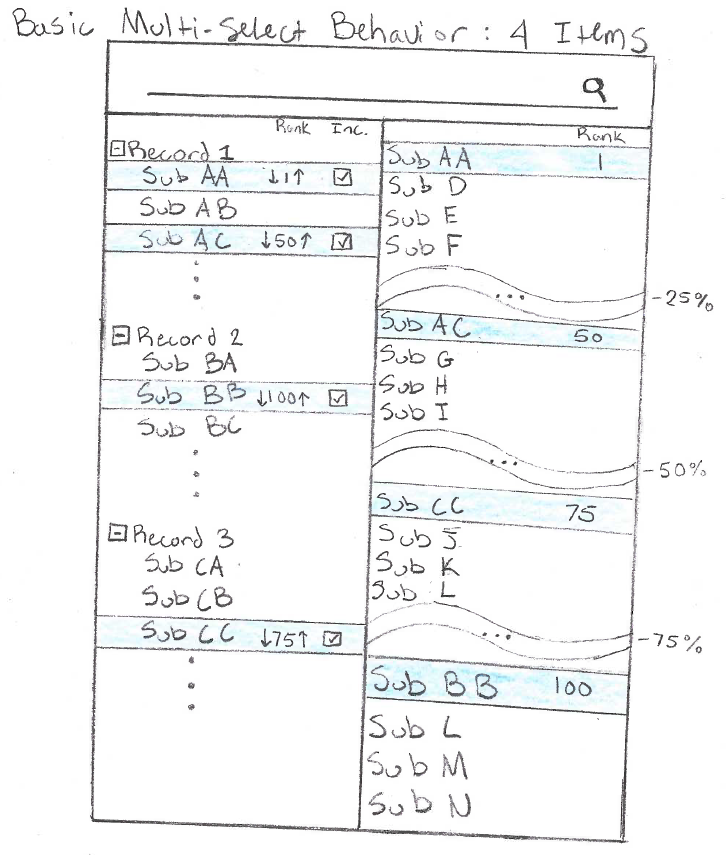 Basic Multi-Select Behavior: 4 Items
Rank Inc.
Record 1
Sub AA ↓1↑
Sub AB
Sub AC ↓50↑
Record 2
Sub BA
Sub BB ↓100↑
Sub BC
Record 3
Sub CA
Sub CB
Sub CC ↓75↑
Rank
Sub AA 1
Sub D
Sub E
Sub F
...
-25%
Sub AC 50
Sub G
Sub H
Sub I
...
-50%
Sub CC 75
Sub J
Sub K
Sub L
...
-75%
Sub BB 100
Sub L
Sub M
Sub N